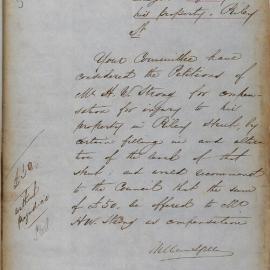 his property. Riley
St
Your Committee have
considered the Petitions of
Mr H. W. Strong for compen-
sation for injury to his
property in Riley Street, by
certain filling in and altera-
tion of the level of that
Street; and would recommend
to the Council that the sum
of £50. be offered to Mr
H W Strong as compensation
£50.
without
prejudice